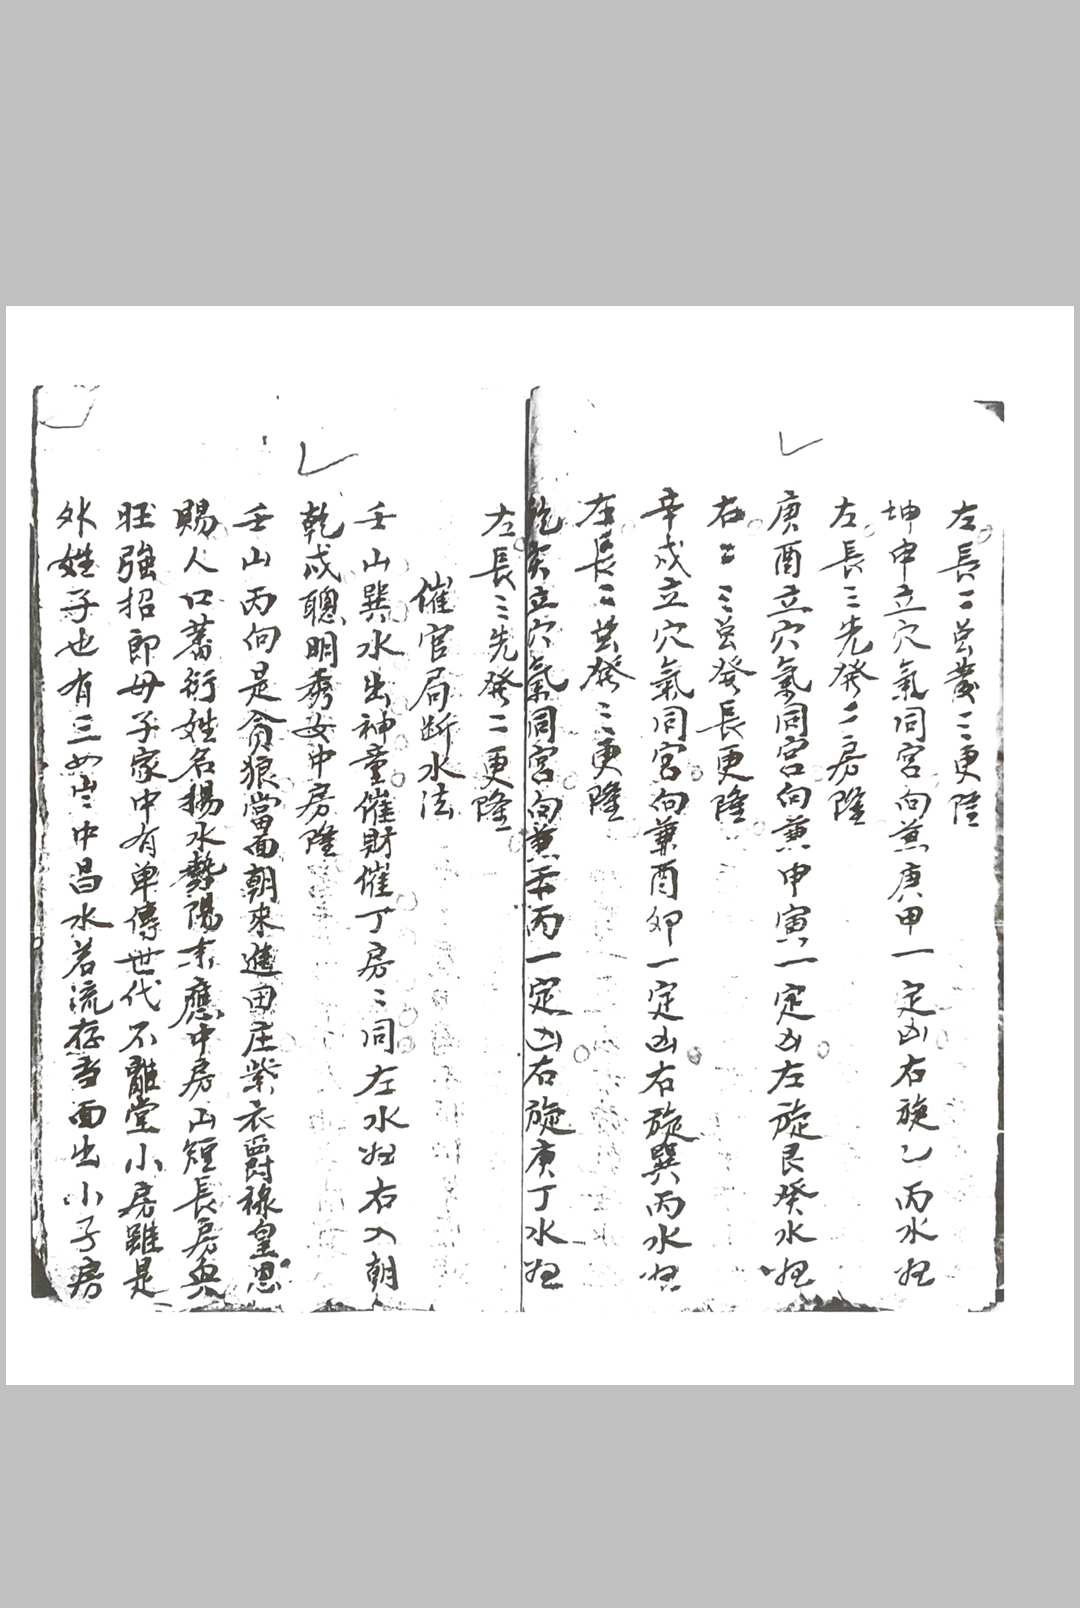 左長二並發三更隆
坤申立穴氣同宮向兼庚甲一定凶右旋乙丙水
左長三先發二房隆
庚酉立穴氣同宮向兼申寅一定凶左旋艮癸水
右二三並發長更隆
辛戍立穴氣同宮向兼酉卯一定凶右旋巽丙水
左長二並發三更隆
乾亥立穴氣同宮向兼壬丙一定凶右旋庚丁水
左長三先發二更隆
催官局斷水法
壬山巽水出神童催財催丁房〻同左水右入朝
乾戍聰明秀女中房隆
壬山丙向是貪狼當面朝來進田庄紫衣爵祿皇恩
賜人口蕃衍姓名揚水勢陽來應中房山短長房與
旺強招郎母子家中有单傳世代不離堂小房雖是
外姓子也有三中昌水若流存当面出小子房